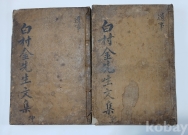 白村金先生文集
白村金先生文集
kobay